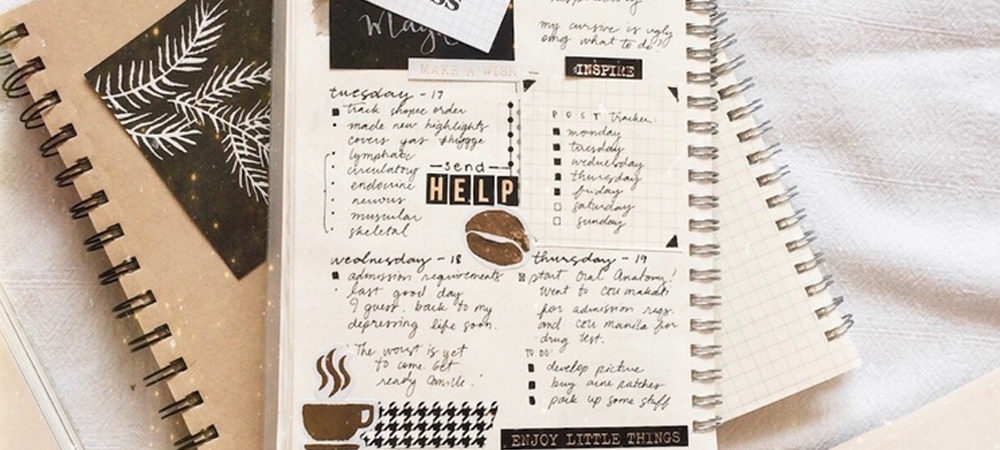 my cursive is ugly
omg what to do?
MAKE A WISH
INSPIRE
tuesday - 17
track shopee order
made new highlights
covers
lymphatic
circulatory
endocrine
nervous
muscular
skeletal
send
HELP
POST tracker:
monday
tuesday
wednesday
thursday
friday
saturday
sunday
wednesday - 18
admission requirements
last good day
I guess. back to my
depressing life soon.
"The worst is yet
to come. Get
ready
thursday - 19
start Oral Anatomy!
Went to CEU makati
for admission reqs.
and CEU manila for
drug test.
TO DO:
develop picture
buy acne patches
pack up some stuff
ENJOY LITTLE THINGS